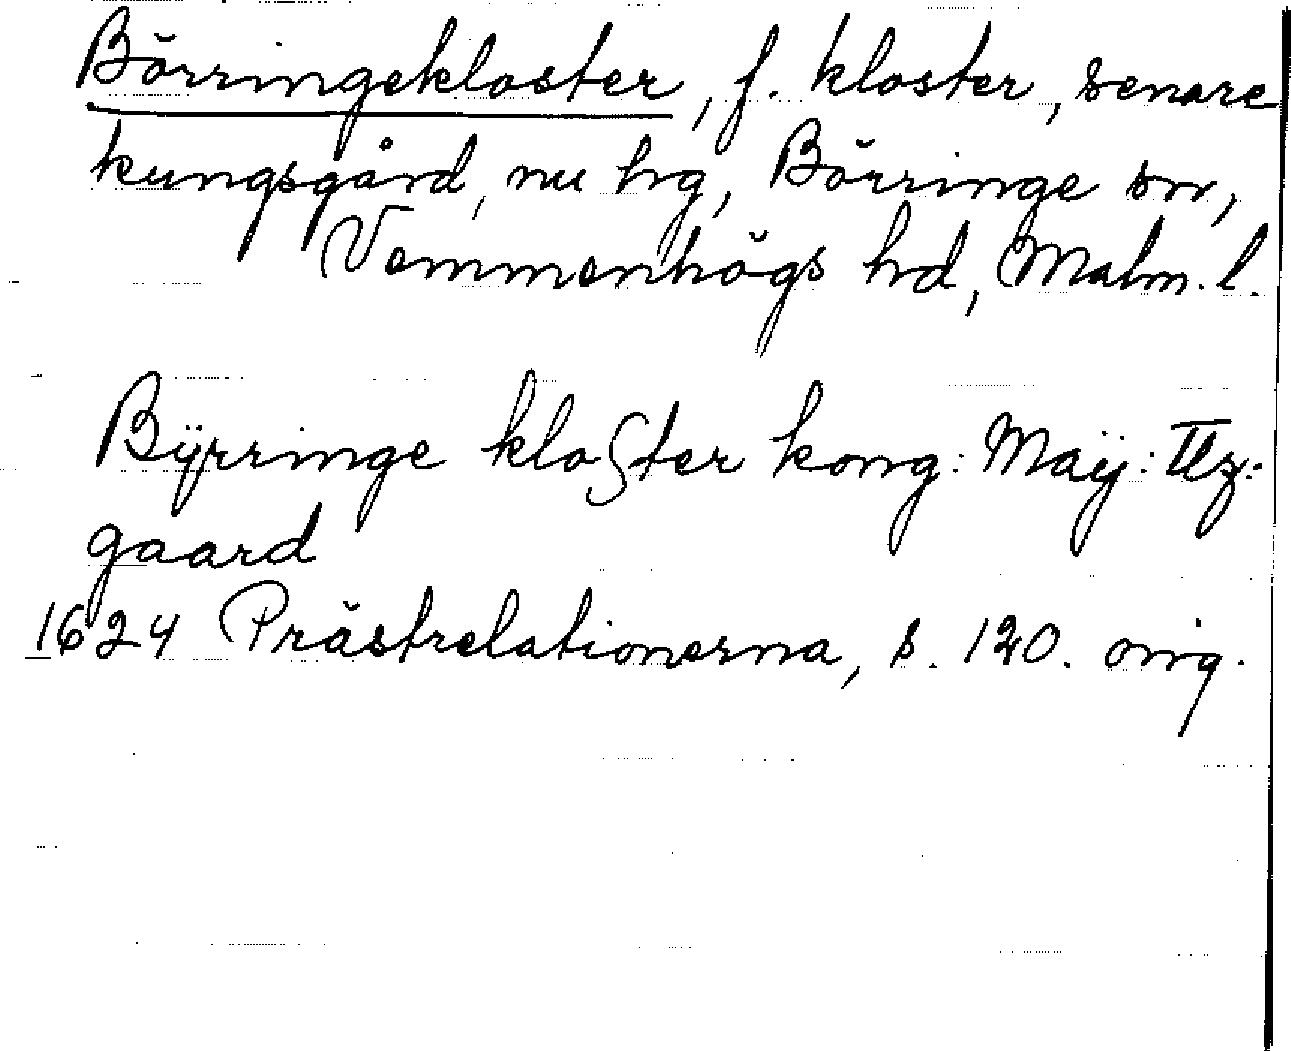 Börringekloster, f. kloster, senare
kungsgård, nu hg, Börringe sn,
Vemmenhögs hd, Malm. l.
Bÿrringe kloster kong: Maÿ:
gaard
1624 Prästrelationerna, s. 120. orig.